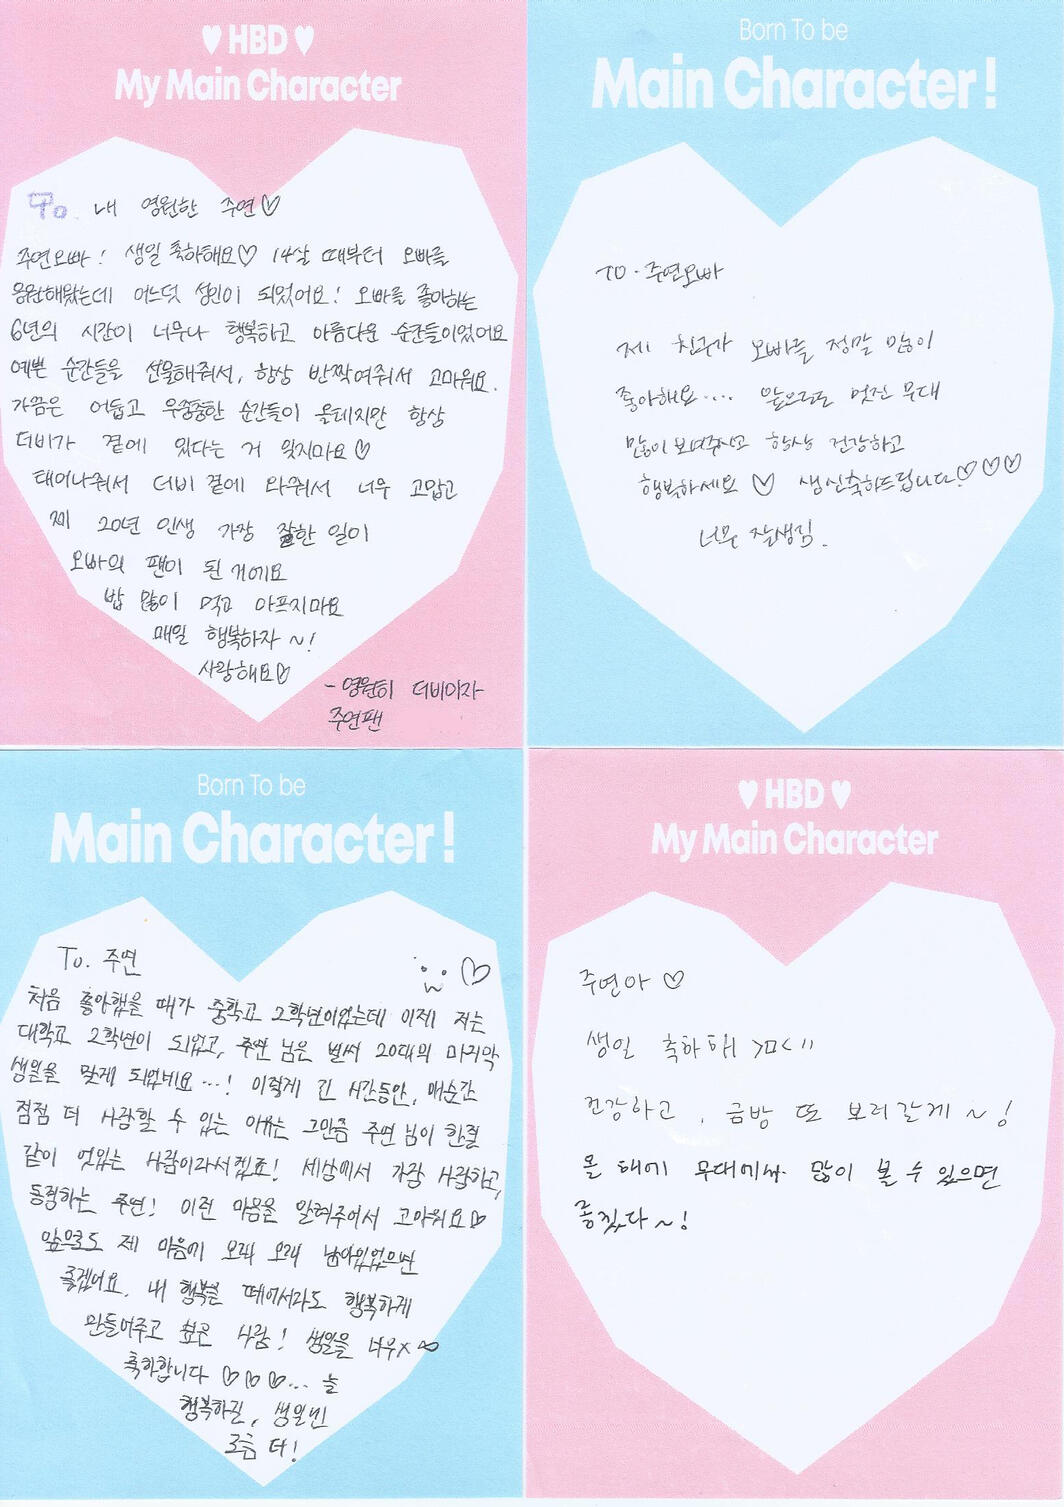 ♥ HBD ♥
My Main Character
To 내 영원한 주연♡
주연오빠! 생일 축하해요♡ 14살 때부터 오빠를
응원해왔는데 어느덧 성인이 되었어요! 오빠를 좋아하는
6년의 시간이 너무나 행복하고 아름다운 순간들이었어요
예쁜 순간들을 선물해줘서, 항상 반짝여줘서 고마워요.
가끔은 어둡고 우중충한 순간들이 올테지만 항상
더비가 곁에 있다는 거 잊지마요♡
태어나줘서 더비 곁에 와줘서 너무 고맙고
제 20년 인생 가장 잘한 일이
오빠의 팬이 된 거에요
밥 많이 먹고 아프지마요
매일 행복하자 ~!
사랑해요♡
- 영원히 더비이자
주연팬
Born To be
Main Character!
TO. 주연오빠
제 친구가 오빠를 정말 많이
좋아해요.... 앞으로도 멋진 무대
많이 보여주시고 항상 건강하고
행복하세요 ♡ 생일축하드립니다♡♡♡
너무 잘생김.
Born To be
Main Character!
To. 주연
처음 좋아했을 때가 중학교 2학년이었는데 이제 저는
대학교 2학년이 되었고, 주연 님은 벌써 20대의 마지막
생일을 맞게 되었네요...! 이렇게 긴 시간동안, 매순간
점점 더 사랑할 수 있는 이유는 그만큼 주연 님이 한결
같이 멋있는 사람이라서겠죠! 세상에서 가장 사랑하고,
동경하는 주연! 이런 마음을 알려주어서 고마워요♡
앞으로도 제 마음에 오래 오래 남아있었으면
좋겠어요. 내 행복을 떼어서라도 행복하게
만들어주고 싶은 사람! 생일을 너무x∞
축하합니다 ♡♡♡... 늘
행복하길, 생일엔
조금 더!
♥ HBD ♥
My Main Character
주연아 ♡
생일 축하해 >ㅁ<
건강하고, 금방 또 보러갈게 ~!
올 해에 무대에서 많이 볼 수 있으면
좋겠다~!